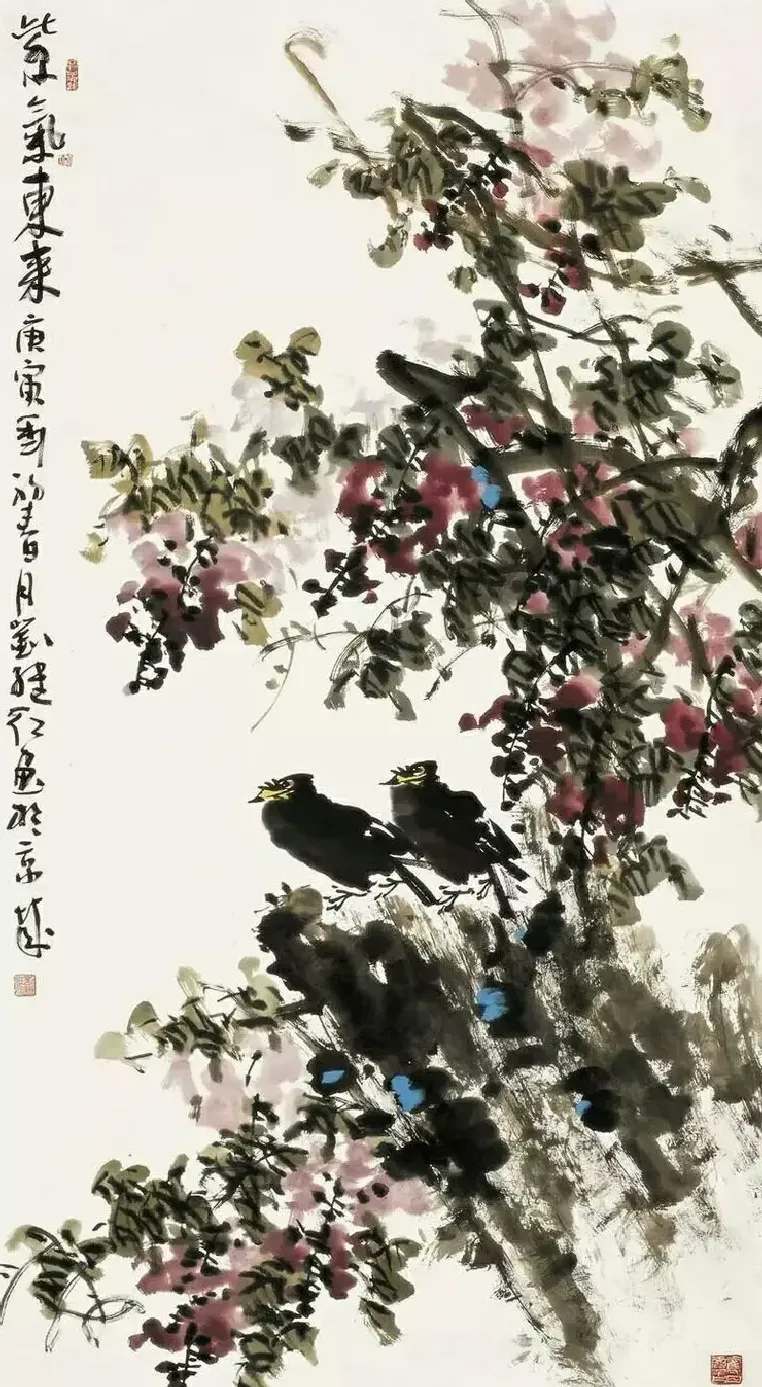 紫氣東來庚寅年初春月劉継红画於京城